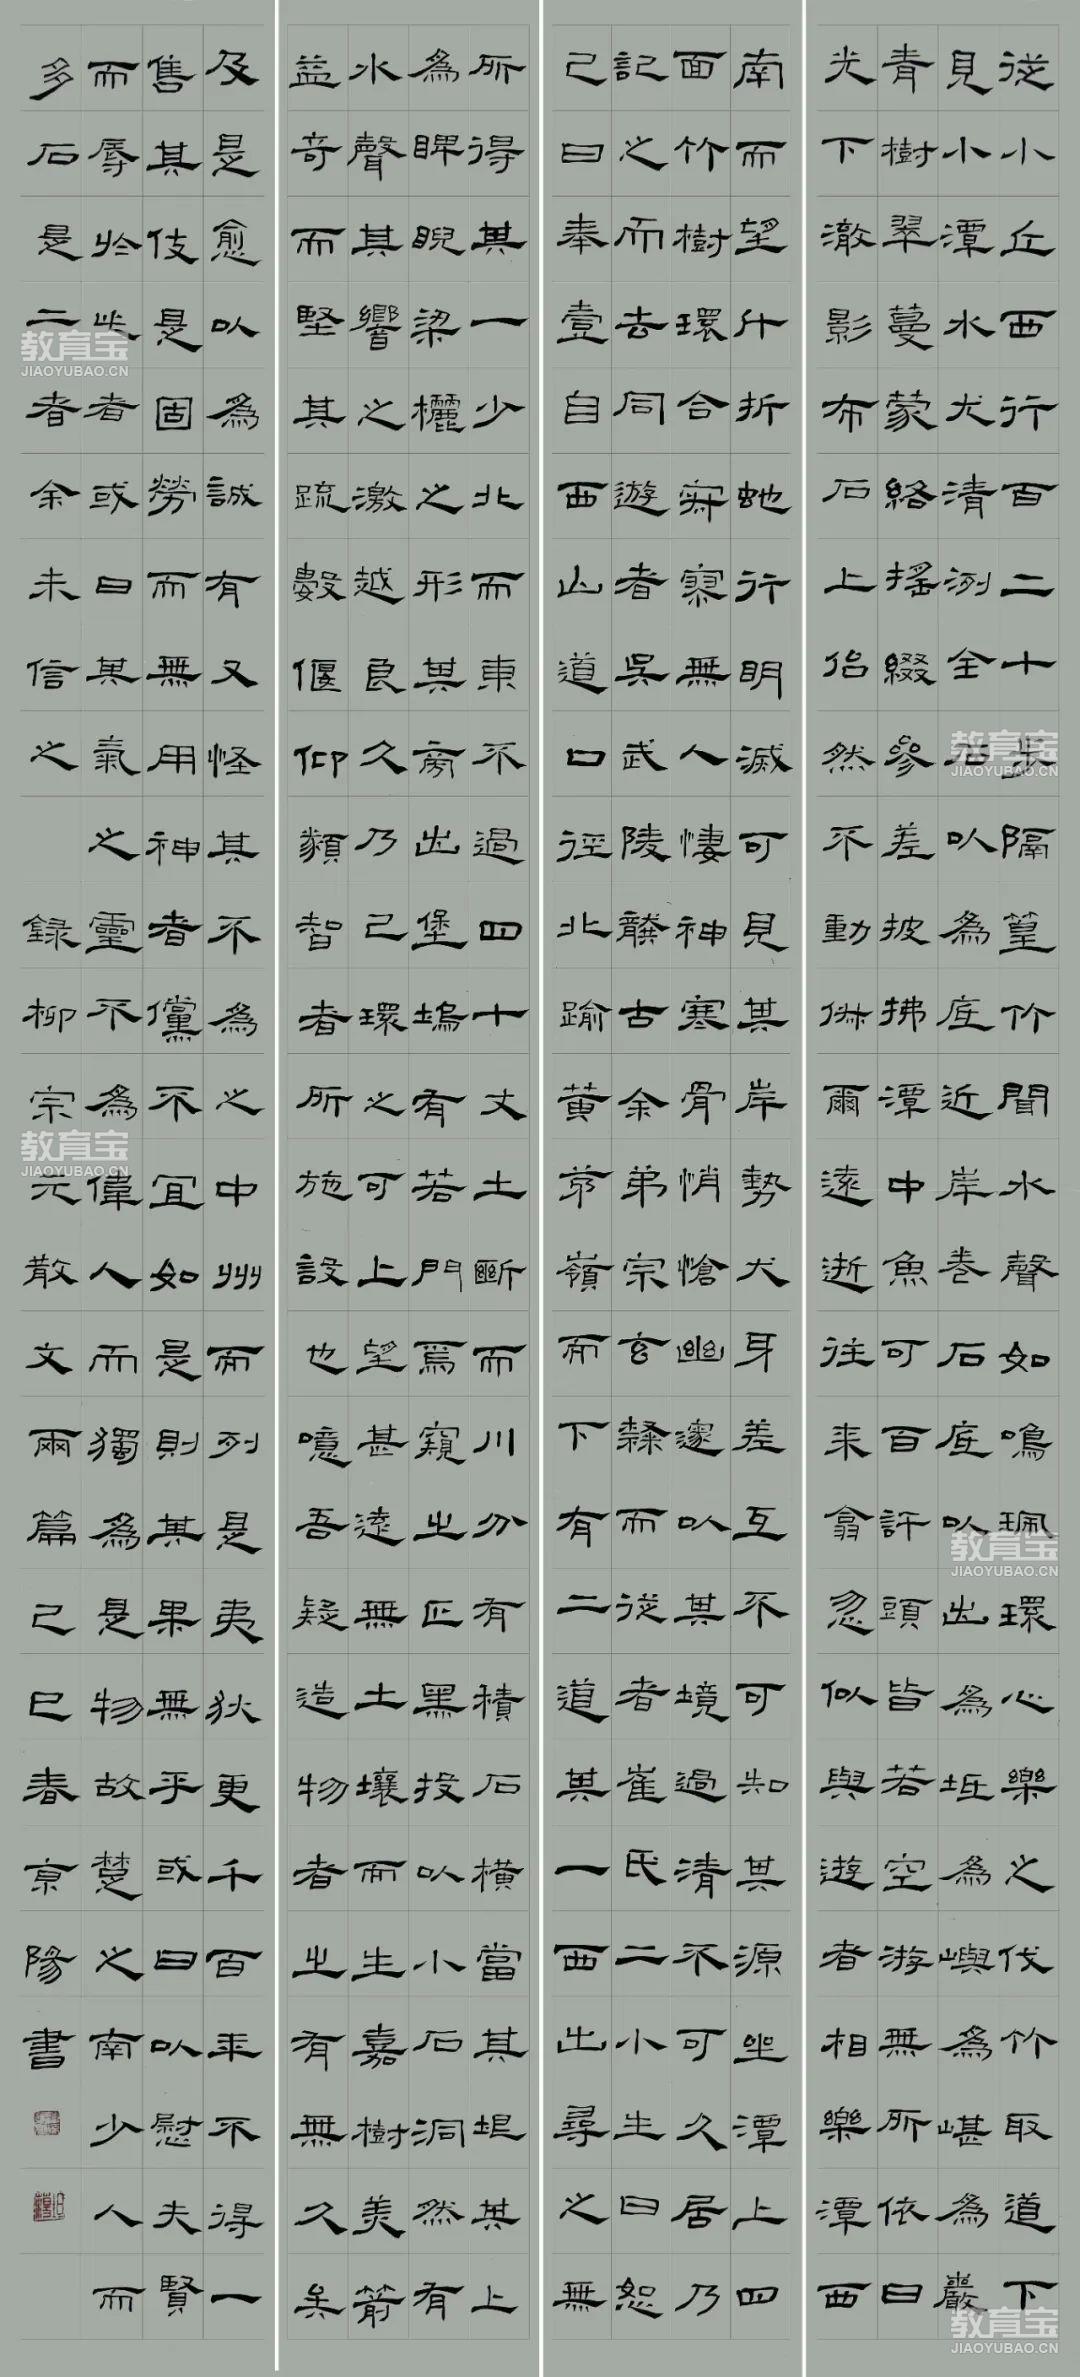 從小丘西行百二十步隔篁竹聞水聲如鳴珮環心樂之伐竹取道下
見小潭水尤清冽全石以為底近岸卷石底以出為坻為嶼為嵁為巖
青樹翠蔓蒙絡搖綴參差披拂潭中魚可百許頭皆若空游無所依曰
光下澈影布石上佁然不動俶爾遠逝往來翕忽似與遊者相樂潭西
南而望斗折蛇行明滅可見其岸勢犬牙差互不可知其源坐潭上四
面竹樹環合寂寥無人悽神寒骨悄愴幽邃以其境過清不可久居乃
記之而去同遊者吳武陵龔古余弟宗玄隸而從者崔氏二小生曰恕
己曰奉壹自西山道口徑北踰黃茅嶺而下有二道其一西出尋之無
所得其一少北而東不過四十丈土斷而川分有積石橫當其垠其上
為睥睨梁欐之形其旁出堡塢有若門焉窺之正黑投以小石洞然有
水聲其響之激越良久乃已環之可上望甚遠無土壤而生嘉樹美箭
益奇而堅其疏數偃仰類智者所施設也噫吾疑造物者之有無久矣
及是愈以為誠有又怪其不為之中州而列是夷狄更千百年不得一
售其伎是固勞而無用神者儻不宜如是則其果無乎或曰以慰夫賢
而辱於此者或曰其氣之靈不為偉人而獨為是物故楚之南少人而
多石是二者余未信之 錄柳宗元散文兩篇己巳春京陽書
教育宝
JIAOYUBAO.CN
教育宝
JIAOYUBAO.CN
教育宝
JIAOYUBAO.CN
教育宝
JIAOYUBAO.CN
教育宝
JIAOYUBAO.CN